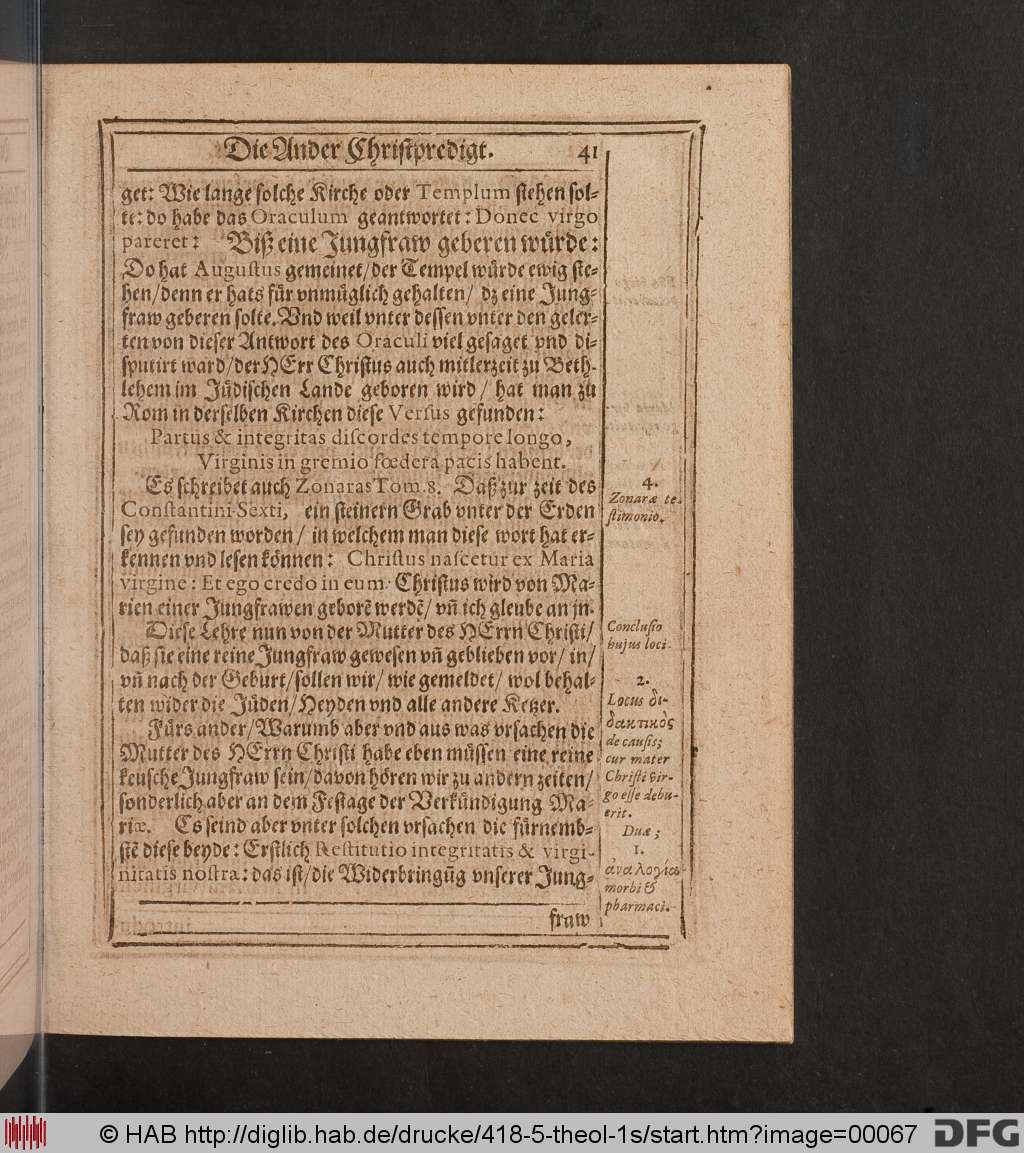 Die Ander Christpredigt. 41
get: Wie lange solche Kirche oder Templum stehen sol-
te: do habe das Oraculum geantwortet: Donec virgo
pareret: Biß eine Jungfraw geberen würde:
Do hat Augustus gemeinet/der Tempel würde ewig ste-
hen/denn er hats für vnmüglich gehalten/ dz eine Jung-
fraw geberen solte. Vnd weil vnter dessen vnter den geler-
ten von dieser Antwort des Oraculi viel gesaget vnd di-
sputirt ward/der HErr Christus auch mitlerzeit zu Beth-
lehem im Jüdischen Lande geboren wird/ hat man zu
Rom in derselben Kirchen diese Versus gefunden:
Partus & integritas discordes tempore longo,
Virginis in gremio fœdera pacis habent.
Es schreibet auch Zonaras Tom. 8. Daß zur zeit des
Constantini Sexti, ein steinern Grab vnter der Erden
sey gefunden worden/ in welchem man diese wort hat er-
kennen vnd lesen können: Christus nascetur ex Maria
virgine: Et ego credo in eum. Christus wird von Ma-
rien einer Jungfrawen geborē werdē/ vñ ich gleube an jn.
Diese Lehre nun von der Mutter des HErrn Christi/
daß sie eine reine Jungfraw gewesen vñ geblieben vor/ in/
vñ nach der Geburt/sollen wir/ wie gemeldet/ wol behal-
ten wider die Jüden/Heyden vnd alle andere Ketzer.
Fürs ander/Warumb aber vnd aus was vrsachen die
Mutter des HErrn Christi habe eben müssen eine reine
keusche Jungfraw sein/davon hören wir zu andern zeiten/
sonderlich aber an dem Festage der Verkündigung Ma-
riæ. Es seind aber vnter solchen vrsachen die fürnemb-
stē diese beyde: Erstlich Restitutio integritatis & virgi-
nitatis nostræ: das ist/die Widerbringūg vnserer Jung-
fraw
4.
Zonaræ te-
stimonio.
Conclusio
hujus loci.
2.
Locus δι-
δακτικὸς
de causis;
cur mater
Christi vir-
go esse debu-
erit.
Duæ;
1.
ἀναλογία
morbi &
pharmaci.
© HAB http://diglib.hab.de/drucke/418-5-theol-1s/start.htm?image=00067
DFG